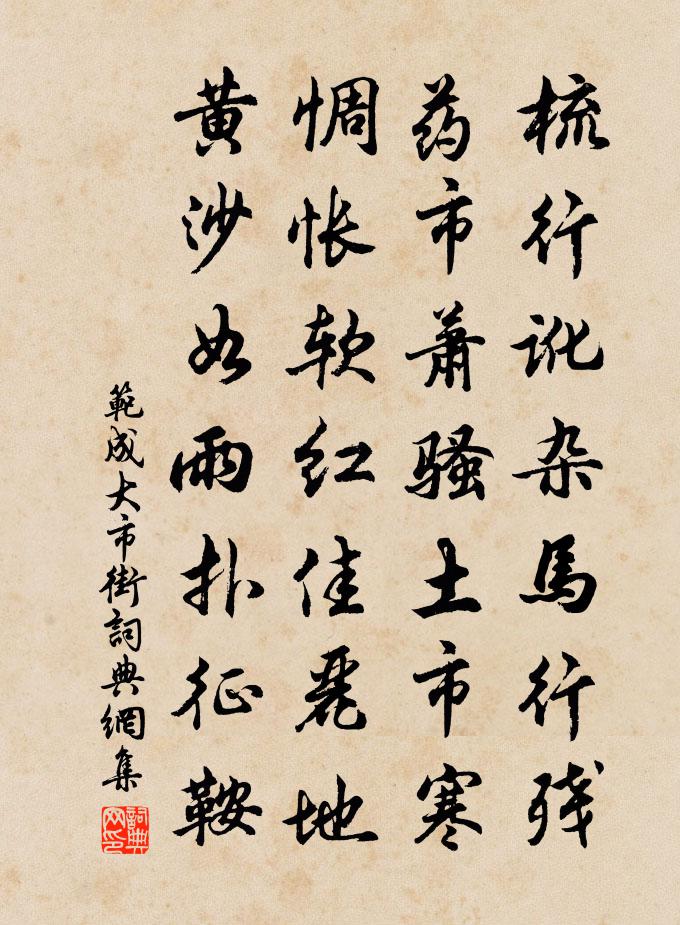 梳行讹杂馬行残
药市萧骚土市寒
惆怅软红佳麗地
黄沙如雨扑征鞍
範成大市街詞典網集
詞典網印